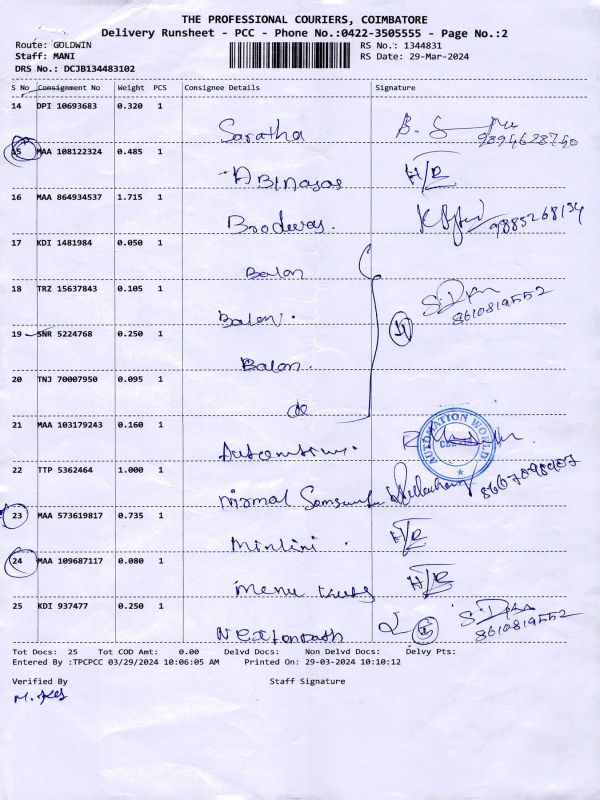 THE PROFESSIONAL COURIERS, COIMBATORE
Delivery Runsheet - PCC - Phone No.:0422-3505555 - Page No.:2
Route: GOLDWIN RS No.: 1344831
Staff: MANI RS Date: 29-Mar-2024
DRS No.: DCJB134483102
S No Consignment No Weight PCS Consignee Details Signature
14 DPI 10693683 0.320 1
Saratha 9894628740
15 MAA 108122324 0.485 1
H/R
16 MAA 864934537 1.715 1
9885268134
17 KDI 1481984 0.050 1
Balon
18 TRZ 15637843 0.105 1
Balon. 8610819552
19 SNR 5224768 0.250 1
Balon.
20 TNJ 70007950 0.095 1
do
21 MAA 103179243 0.160 1
AUTOMATION WORLD
22 TTP 5362464 1.000 1
Nirmal
23 MAA 573619817 0.735 1
H/R
24 MAA 109687117 0.080 1
H/R
25 KDI 937477 0.250 1
8610819552
Tot Docs: 25 Tot COD Amt: 0.00 Delvd Docs: Non Delvd Docs: Delvy Pts:
Entered By :TPCPCC 03/29/2024 10:06:05 AM Printed On: 29-03-2024 10:10:12
Verified By Staff Signature